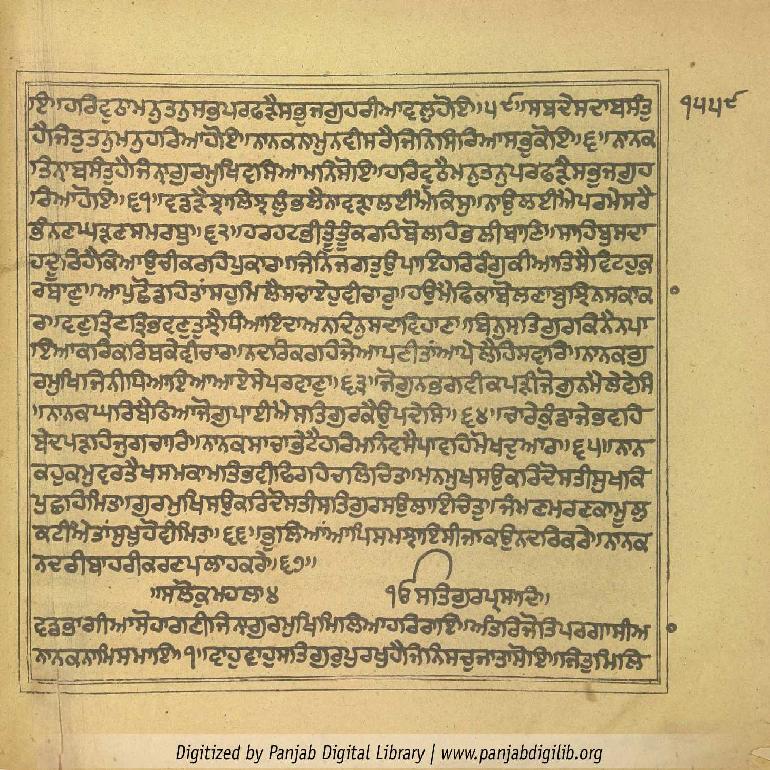 ਇ॥ਹਰਿਵੁਠਾਮਨੁਤਨੁਸਭੁਪਰਫੜੈਸਭੁਜਗੁਹਰੀਆਵਲੁਹੋਇ॥੫੯॥ਸਬਦੇਸਦਾਬਸੰਤੁ
੧੫੫੯
ਹੈਜਿਤੁਤਨੁਮਨੁਹਰਿਆਹੋਇ॥ਨਾਨਕਨਾਮੁਨਵੀਸਰੈਜਿਨਿਸਿਰਿਆਸਭੁਕੋਇ॥੬॥ਨਾਨਕ
ਤਿਨਾਬਸੰਤੁਹੈਜਿਨਾਗੁਰਮੁਖਿਵਸਿਆਮਨਿਸੋਇ॥ਹਰਿਵੁਠੈਮਨੁਤਨੁਪਰਫੜੈਸਭੁਜਗੁਹ
ਰਿਆਹੋਇ॥੬੧॥ਵਡੜੈਝਾਲਿਝਲੁੰਭਲੈਨਾਵੜਾਲਈਐਕਿਸੁ॥ਨਾਉਲਈਐਪਰਮੇਸਰੈ
ਭੰਨਣਘੜਣਸਮਰਥੁ॥੬੨॥ਹਰਹਟਭੀਤੂੰਤੂੰਕਰਹਿਬੋਲਹਿਭਲੀਬਾਣਿ॥ਸਾਹਿਬੁਸਦਾ
ਹਦੂਰਿਹੈਕਿਆਉਚੀਕਰਹਿਪੁਕਾਰ॥ਜਿਨਿਜਗਤੁਉਪਾਇਹਰਿਰੰਗੁਕੀਆਤਿਸੈਵਿਟਹੁਕੁ
ਰਬਾਣੁ॥ਆਪੁਛੋਡਹਿਤਾਂਸਹੁਮਿਲੈਸਚਾਏਹੁਵੀਚਾਰੁ॥ਹਉਮੈਫਿਕਾਬੋਲਣਾਬੁਝਿਨਸਕਾਕਾ
ਰ॥ਵਣੁਤ੍ਰਿਣੁਤ੍ਰਿਭਵਣੁਤੁਝੈਧਿਆਇਦਾਅਨਦਿਨੁਸਦਾਵਿਹਾਣ॥ਬਿਨੁਸਤਿਗੁਰਕਿਨੈਨਪਾ
ਇਆਕਰਿਕਰਿਥਕੇਵੀਚਾਰ॥ਨਦਰਿਕਰਹਿਜੇਆਪਣੀਤਾਂਆਪੇਲੈਹਿਸਵਾਰਿ॥ਨਾਨਕਗੁ
ਰਮੁਖਿਜਿਨੀਧਿਆਇਆਆਏਸੇਪਰਵਾਣੁ॥੬੩॥ਜੋਗੁਨਭਗਵੀਕਪੜੀਜੋਗੁਨਮੈਲੇਵੇਸਿ
॥ਨਾਨਕਘਰਿਬੈਠਿਆਜੋਗੁਪਾਈਐਸਤਿਗੁਰਕੈਉਪਦੇਸਿ॥੬੪॥ਚਾਰੇਕੁੰਡਾਜੇਭਵਹਿ
ਬੇਦਪੜਹਿਜੁਗਚਾਰਿ॥ਨਾਨਕਸਾਚਾਭੇਟੈਹਰਿਮਨਿਵਸੈਪਾਵਹਿਮੋਖਦੁਆਰ॥੬੫॥ਨਾਨ
ਕਹੁਕਮੁਵਰਤੈਖਸਮਕਾਮਤਿਭਵੀਫਿਰਹਿਚਲਚਿਤ॥ਮਨਮੁਖਸਉਕਰਿਦੋਸਤੀਸੁਖਕਿ
ਪੁਛਹਿਮਿਤ॥ਗੁਰਮੁਖਿਸਉਕਰਿਦੋਸਤੀਸਤਿਗੁਰਸਉਲਾਇਚਿਤੁ॥ਜੰਮਣਮਰਣਕਾਮੂਲੁ
ਕਟੀਐਤਾਂਸੁਖੁਹੋਵੀਮਿਤ॥੬੬॥ਭੁਲਿਆਂਆਪਿਸਮਝਾਇਸੀਜਾਕਉਨਦਰਿਕਰੇ॥ਨਾਨਕ
ਨਦਰੀਬਾਹਰੀਕਰਣਪਲਾਹਕਰੇ॥੬੭॥
॥ਸਲੋਕੁਮਹਲਾ੪ ੴਸਤਿਗੁਰਪ੍ਰਸਾਦਿ॥
ਵਡਭਾਗੀਆਸੋਹਾਗਣੀਜਿਨਾਗੁਰਮੁਖਿਮਿਲਿਆਹਰਿਰਾਇ॥ਅੰਤਰਿਜੋਤਿਪਰਗਾਸੀਆ
ਨਾਨਕਨਾਮਿਸਮਾਇ॥੧॥ਵਾਹੁਵਾਹੁਸਤਿਗੁਰੁਪੁਰਖੁਹੈਜਿਨਿਸਚੁਜਾਤਾਸੋਇ॥ਜਿਤੁਮਿਲਿ
Digitized by Panjab Digital Library | www.panjabdigilib.org